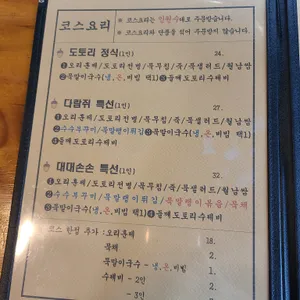 코스요리
※ 코스요리는 인원수대로 주문받습니다.
※ 코스요리와 단품을 섞어 주문받지 않습니다.
도토리 정식(1인) 24.
①오리훈제/도토리전병/묵무침/묵/묵샐러드/월남쌈
②묵말이국수(냉,온,비빔 택1)③들깨도토리수제비
다람쥐 특선(1인) 27.
①오리훈제/도토리전병/묵무침/묵/묵샐러드/월남쌈
②수수부꾸미/묵말랭이튀김③묵말이국수(냉,온,비빔 택1)
④들깨도토리수제비
대대손손 특선(1인) 32.
①오리훈제/도토리전병/묵무침/묵/묵샐러드/월남쌈
②수수부꾸미/묵말랭이튀김/묵말랭이볶음/묵채
③묵말이국수(냉,온,비빔 택1)④들깨도토리수제비
코스 한정 추가 : 오리훈제 18.
묵채
묵말이국수 - 냉,온,비빔
수제비 - 2인
- 3인